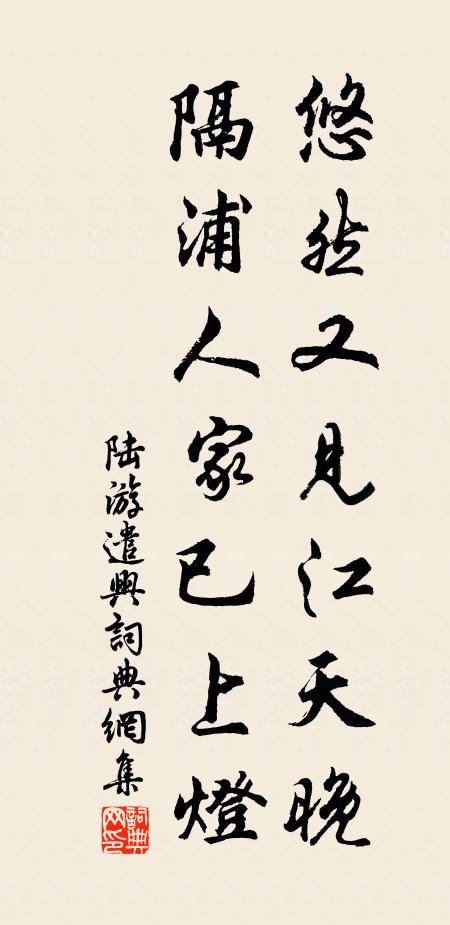 悠然又見江天晚
隔浦人家已上燈
陸游遣興詞典網集
詞典网印